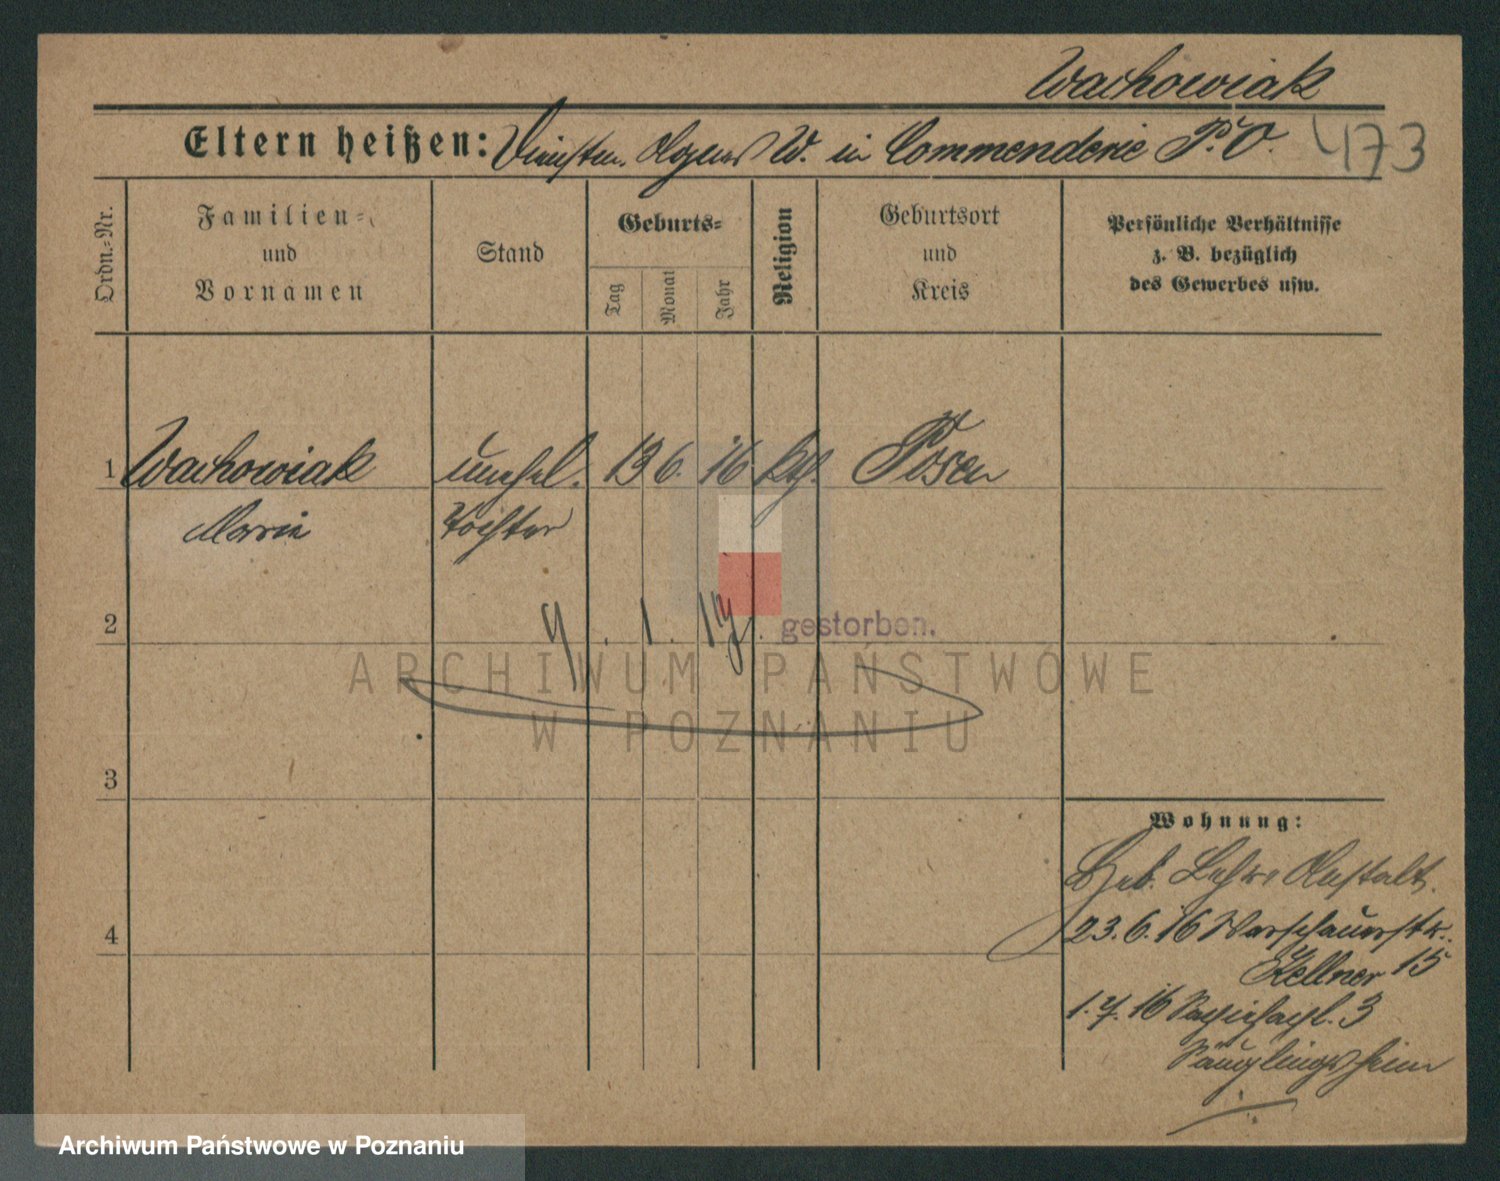 Wachowiak
Eltern heißen: W. in Commenderie P. O. 473
Ordn.=Nr.
Familien=
und
Vornamen
Stand
Geburts=
Tag
Monat
Jahr
Religion
Geburtsort
und
Kreis
Persönliche Verhältnisse
z. B. bezüglich
des Gewerbes usw.
1 Wachowiak unehel. 13 6. 16 kth. Posen
Marie Tochter
2 9. 1. 17. gestorben.
ARCHIWUM PAŃSTWOWE
W POZNANIU
3
Wohnung:
Heb. Lehr Anstalt.
4 23. 6. 16 Warschauerstr.
Kellner 15
1. 7. 16 3
Säuglingsheim
Archiwum Państwowe w Poznaniu